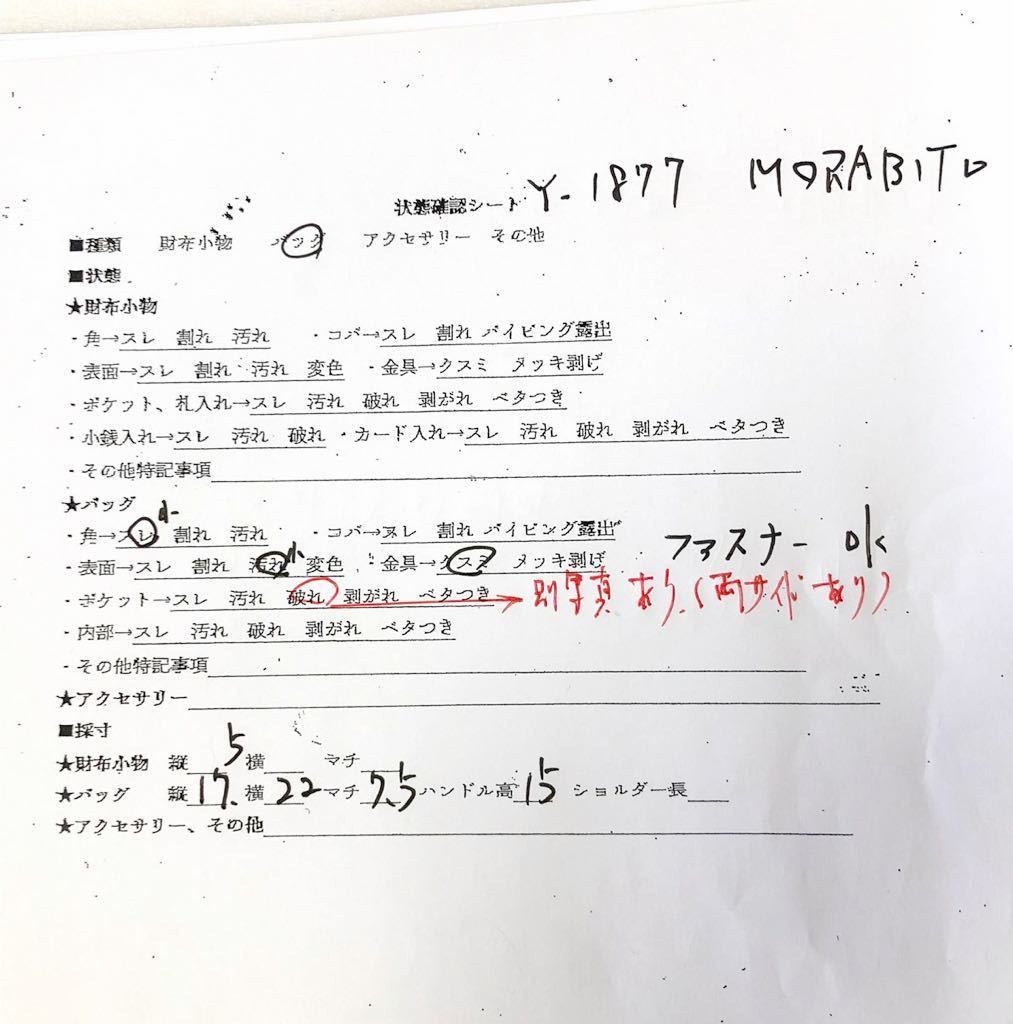 Y-1877 MORABITO
状態確認シート
■種類 財布小物 バッグ アクセサリー その他
■状態
★財布小物
・角→スレ 割れ 汚れ ・コバ→スレ 割れ パイピング露出
・表面→スレ 割れ 汚れ 変色 ・金具→クスミ メッキ剥げ
・ポケット、札入れ→スレ 汚れ 破れ 剥がれ ベタつき
・小銭入れ→スレ 汚れ 破れ ・カード入れ→スレ 汚れ 破れ 剥がれ ベタつき
・その他特記事項
★バッグ
小
・角→スレ 割れ 汚れ ・コバ→スレ 割れ パイピング露出
ファスナー ok
小
・表面→スレ 割れ 汚れ 変色 ・金具→クスミ メッキ剥げ
・ポケット→スレ 汚れ 破れ 剥がれ ベタつき→別写真あり(両サイドあり)
・内部→スレ 汚れ 破れ 剥がれ ベタつき
・その他特記事項
★アクセサリー
■採寸
★財布小物 縦 横 マチ
★バッグ 縦17.5 横22 マチ7.5 ハンドル高15 ショルダー長
★アクセサリー、その他